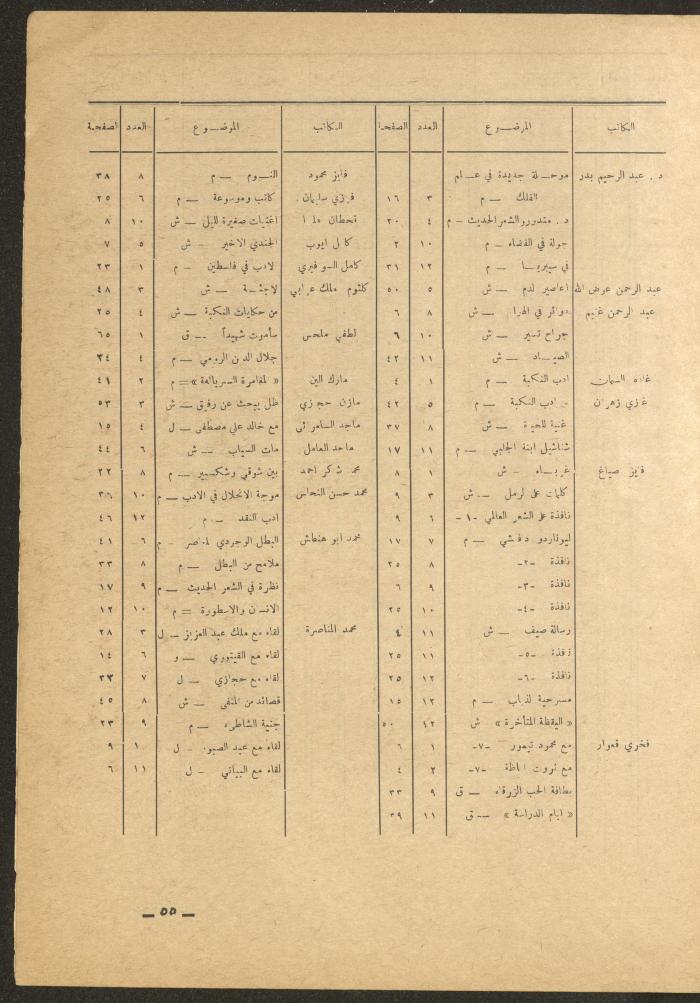 الكاتب الموضوع العدد الصفحة
د . عبد الرحيم بدر موحلة جديدة في عالم
الفلك — م ٣ ١٦
د . مندور والشعر الحديث – م ٤ ٢٠
جولة في الفضاء – م ١٠ ٢
في سيبريا — م ١٢ ٣١
عبد الرحمن عرض الله اعاصير لدم — ش ٥ ٥٠
عبد الرحمن غنيم دوائر في الهوا – ش ٨ ٦
جراح تسير — ش ١٠ ٦
الصياد — ش ١١ ٤٢
غادة السمان ادب النكبة — م ١ ٤
غازي زهران ادب النكبة — م ٥ ٤٢
غنية للحيرة — ش ٨ ٣٧
شناشيل ابنة الجلبي — م ١١ ١٧
فايز صياغ غرباء – ش ١ ٨
كلمات على لرمل — ش ٣ ٩
نافذة على الشعر العالمي -١- ٦ ٩
ليوناردو دفنشي — م ٧ ١٧
نافذة -٢- ٨ ٢٥
نافذة -٣- ٩ ٦
نافذة -٤- ١٠ ٢٥
رسالة صيف — ش ١١ ٤
نافذة -٥- ١١ ٢٥
نافذة -٦- ١٢ ٢٥
مسرحية لذباب — م ١٢ ١٥
« اليقظة المتأخرة » ش ١٢ ٥٠
فخري قعوار مع محمود تيمور -٧- ١ ٦
مع ثروت اباظة -٧- ٢ ٤
بطاقة الحب الزرقاء — ق ٩ ٣٣
« ايام الدراسة » — ق ١١ ٣٩
الكاتب الموضوع العدد الصفحة
فايز محمود النوم — م ٨ ٣٨
فوزي سليمان كاتب وموسوعة — م ٦ ٢٥
قحطان اغنيات صغيرة لليل — ش ١٠ ٨
كمال ايوب الجندي الاخير – ش ٥ ٧
كامل السوافيري لادب في فلسطين – م ١ ٢٣
كلثوم ملك عرابي لاجئة — ش ٣ ٤٨
من حكايات النكبة — ش ٤ ٢٥
لطفي ملحس سأموت شهيداً — ق ١ ٦٥
جلال الدين الرومي — م ٤ ٣٤
مارك الين « المغامرة السريالية » = م ٢ ٤١
مازن حجازي ظل يبحث عن رفيق — ش ٣ ٥٣
ماجد السامرائي مع خالد علي مصطفى – ل ٤ ١٥
ماجد العامل مات السياب — ش ٦ ٤٤
محمد شكر احمد بين شوقي وشكسبير — م ٨ ٢٢
محمد حسن النحاس موجة الانحلال في الادب — م ١٠ ٣٦
ادب النقد — م ١٢ ٤٦
محمد ابو هنطش البطل الوجودي المعاصر – م ٦ ٤١
ملامح من البطل — م ٨ ٣٣
نظرة في الشعر الحديث — م ٩ ١٧
الانسان والاسطورة = م ١٠ ١٢
محمد المناصرة لقاء مع ملك عبد العزيز — ل ٣ ٢٨
لقاء مع الفيتوري — و ٦ ١٤
لقاء مع حجازي — ل ٧ ٣٣
قصائد من المنفى — ش ٨ ٤٥
جنية الشاطىء — م ٩ ٢٣
لقاء مع عبد الصبور – ل ١٠ ٩
لقاء مع البياتي – ل ١١ ٦
— ٥٥ —